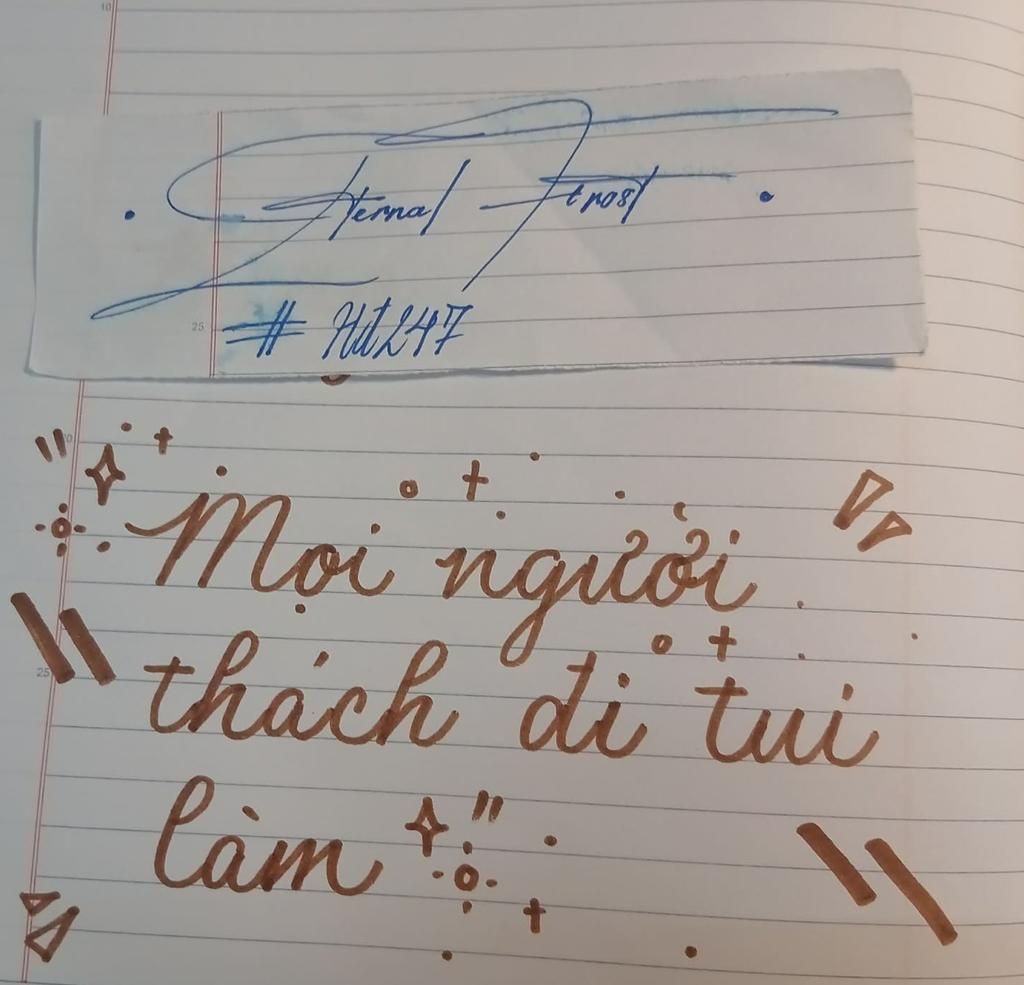 Eternal Frost
# Hd247
Mọi người
thách đi tui
làm